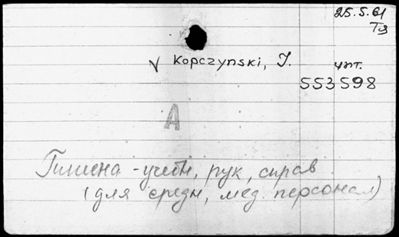 25.5.61
Тз
√ Kopczynski, J.
чт.
553598
A
Гигиена - учебн, рук, справ
(для средн, мед. персонал)